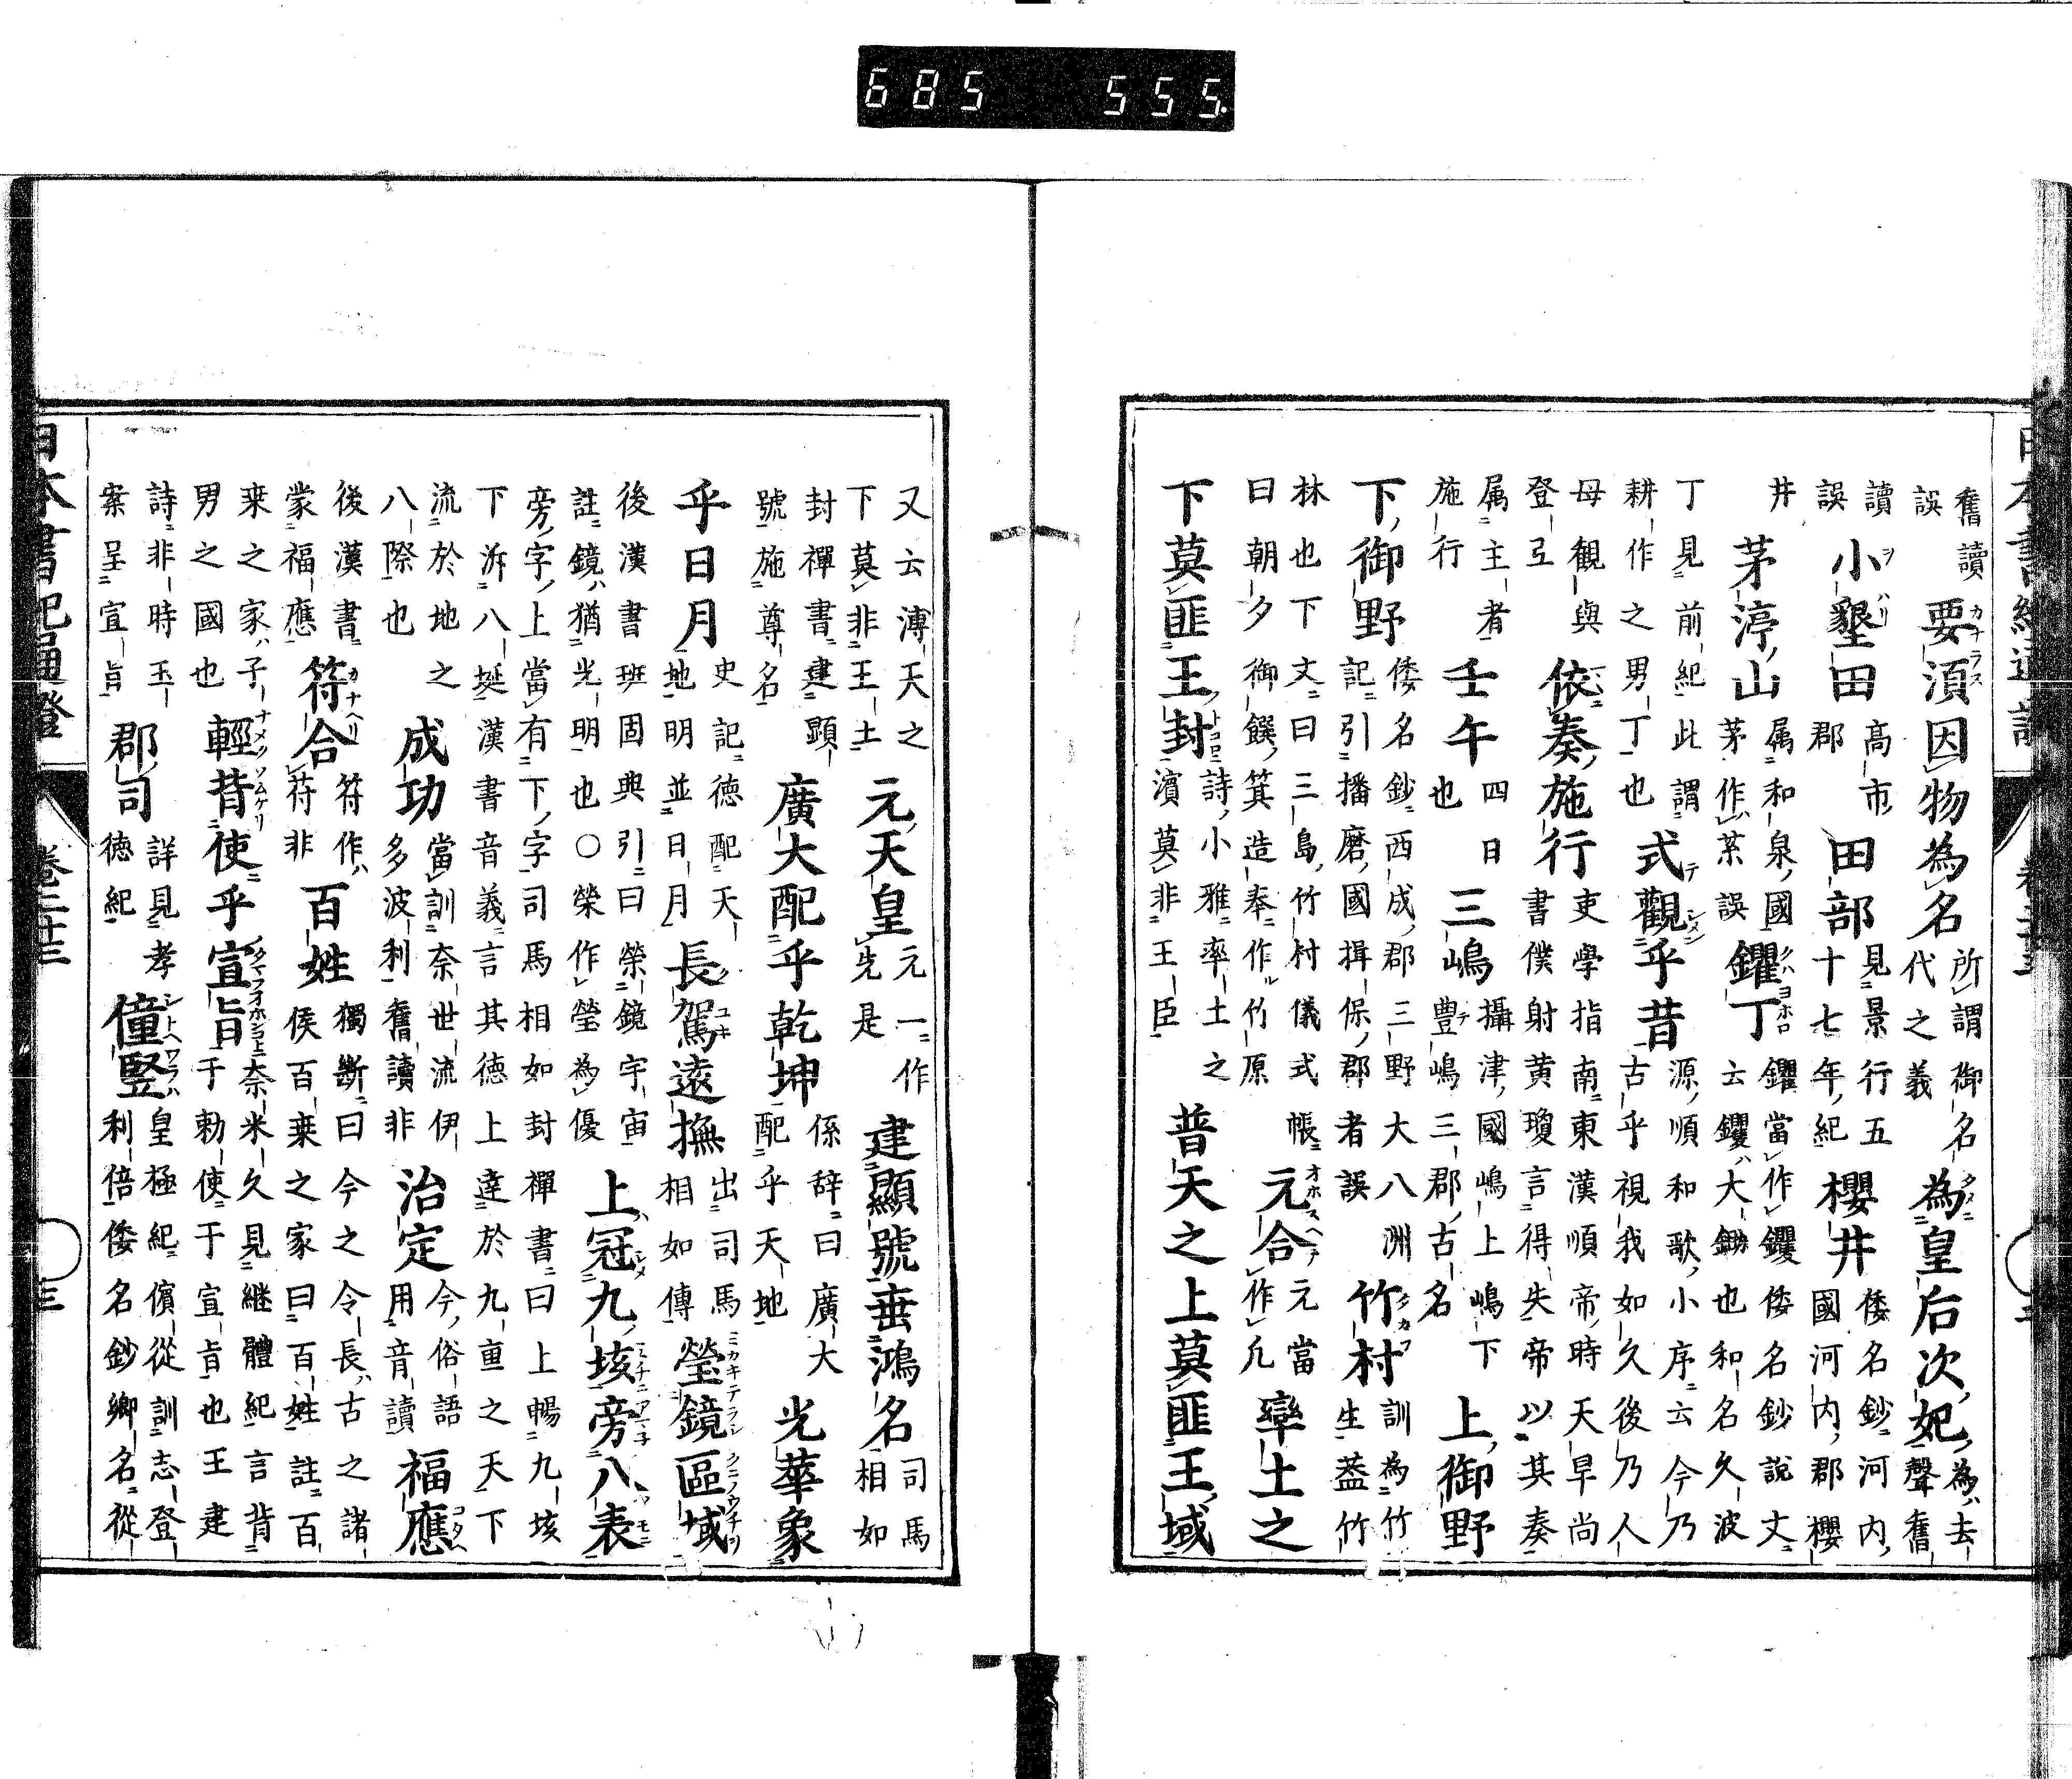 舊讀誤 要湏因物為名 所謂御名代之義 為皇后次妃 為去聲舊
讀誤 小墾田 高市郡 田部 見景行五十七年紀 櫻井 倭名鈔河内國河内郡櫻
井 茅渟山 属和泉國茅作 誤 钁丁 當作钁倭名鈔說文云钁大鋤也和名久波
丁見前紀此謂耕作之男丁也 式觀乎昔 源順和歌小序云今乃古乎視我如久後乃人
母觀與登弖 依奏施行 吏學指南東漢順帝時天旱尚書僕射黄瓊言得失帝以其奏
属主者施行 壬午 四日也 三嶋 攝津國嶋上嶋下豊嶋三郡古名 上御野
下御野 倭名鈔西成郡三野大八洲記引播磨國揖保郡者誤 竹村 訓為竹生葢竹
林也下文曰三島竹村儀式帳曰朝夕御饌箕造奉作竹原 元合 元當作凢 率土之
下莫匪王封 詩小雅率土之濱莫非王臣 普天之上莫匪王域
又云溥天之下莫非王土 元天皇 元一作先是 建顯號垂鴻名 司馬相如
封禪書建顯號施尊名 廣大配乎乾坤 係辞曰廣大配乎天地 光華象
乎日月 史記徳配天地明並日月 長駕遠撫 出司馬相如傳 瑩鏡區域
後漢書班固典引曰榮鏡宇宙註鏡猶光明也○榮作瑩為優 上冠九垓旁八表
旁字上當有下字司馬相如封禪書曰上暢九垓下泝八埏漢書音義言其徳上達於九重之天下
流於地之八際也 成功 當訓奈世流伊多波利舊讀非 治定 今俗語用音讀 福應
後漢書蒙福應 符合 符作苻非 百姓 獨断曰今之令長古之諸侯百乗之家曰百姓註百
乗之家子男之國也 輕背使乎宣旨 奈米久見継體紀言背于勅使于宣旨也王建
詩非時玉案呈宣旨 郡司 詳見孝徳紀 僮竪 皇極紀儐從訓志登利倍倭名鈔郷名從
日本書紀通證 卷二十三 三
685 555